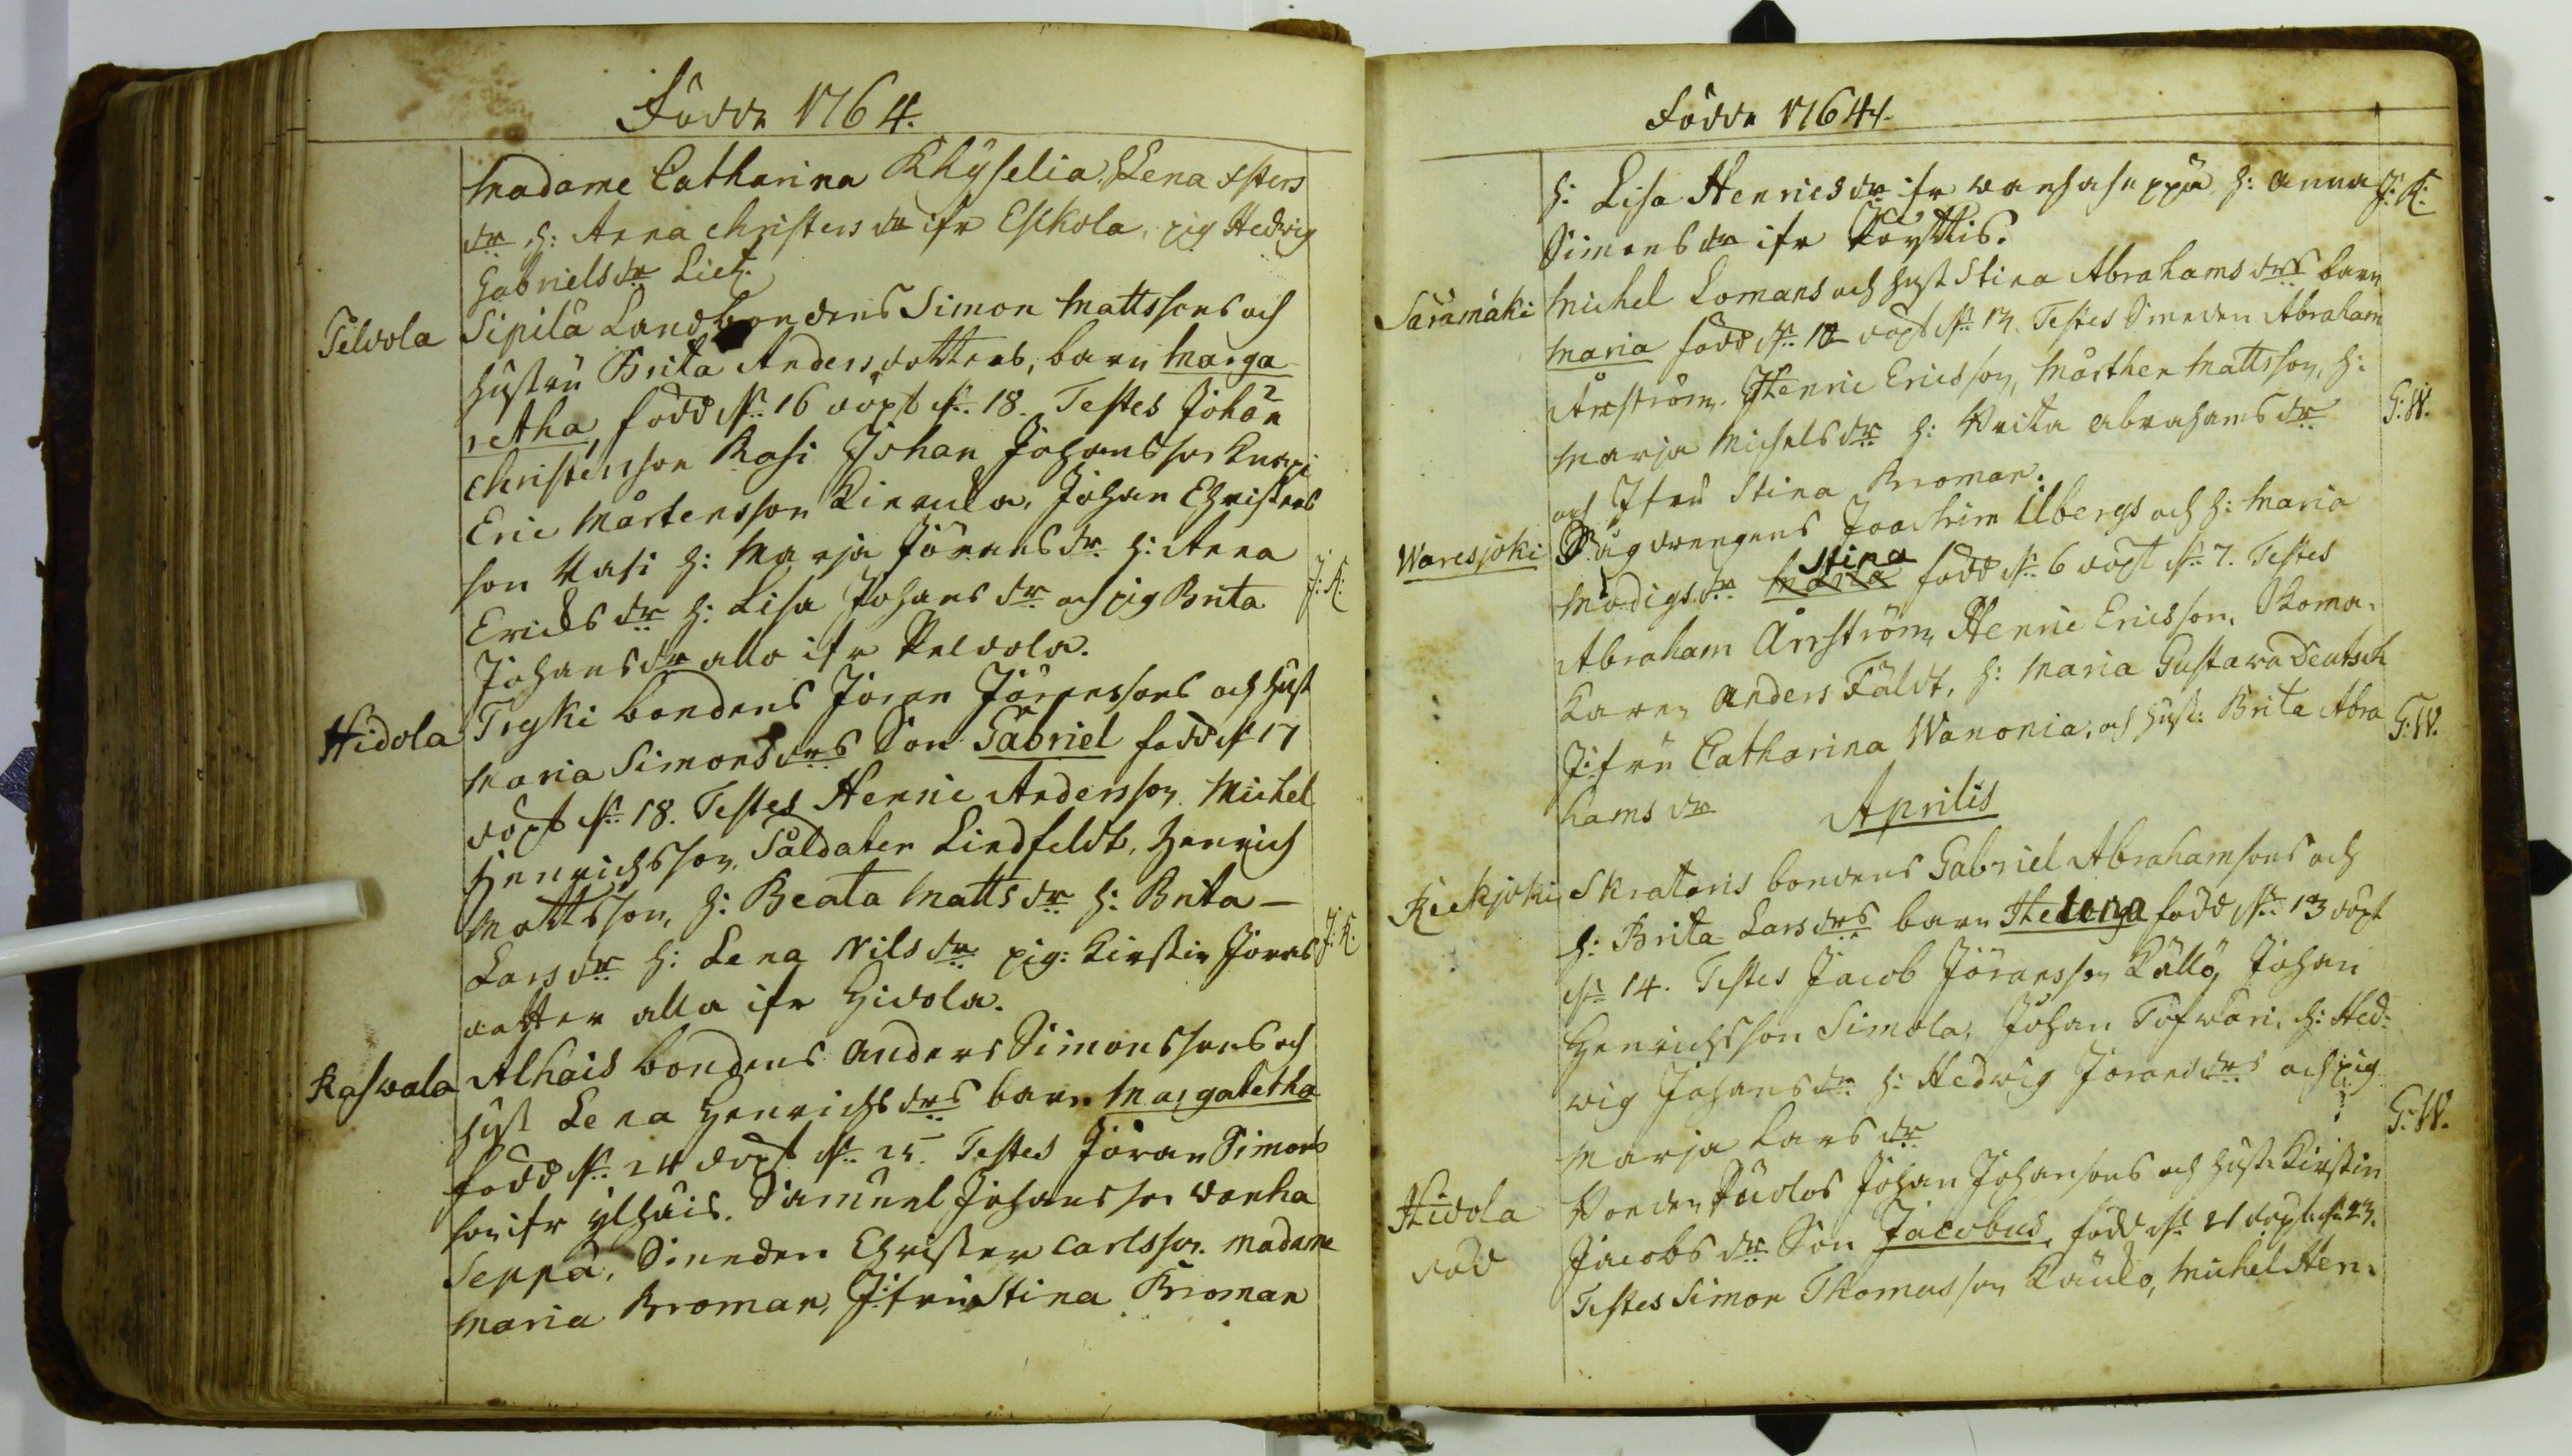 Födde 1764.
Madame Catharina Khyselia, H Lena Xsters
dr, h: Anna Christers dr ifr Eskola, pig Hedvig
Gabriels dr Liet.
Peldola Sipilä Landbondens Simon Mattssons och
hustru Brita Andersdotters, barn Marga
retha, född d. 16 döpt d. 18. Testes Johan
Christersson Rasi Johan Johansson Knapi
Eric Mårtensson Kierula, Johan Christers
son Rasi h: Marja Jörans dr h: Anna
Ericks dr h: Lisa Johans dr och pig Brita J: K:
Johans dr alla ifr Peldola.
Hidola Tryki bondens Jöran Jöranssons och hust
Maria Simons drs Son Gabriel född d 17
döpt d. 18. Testes Henric Andersson Michel
Henrichsson, Soldaten Lindfeldt, Henrich
Mattsson, h: Beata Matts dr h: Brita
Lars dr h: Lena Nils dr pig: Kirstin Jörans J: K.
dotter alla ifr Hidola.
Kaswala Alhais bondens Anders Simonssons och
hust Lena Henrichs drs barn Margaretha
född d. 24 döpt d. 25. Testes Jöran Simons
son ifr Ylhäis. Samuel Johansson Wanha
Seppä, Smeden Christer Carlsson. Madame
Maria Broman, Jfru Stina Broman
Födde 1764.
h: Lisa Henrics dr ifr wanhaseppä, h: Anna J: K:
Simons dr ifr Köyttis.
Säramäki Michel Lomans och hust Stina Abrahams drs barn
Maria född d. 12 döpt d. 13. Testes Smeden Abraham
Arrström. Henric Ericsson, Mårthen Mattsson, h:
Marja Michels dr h: Brita Abrahams dr G: W.
och Jfru Stina Broman.
Waresjoki Bågdrengens Joachim Ulbergs och h: Maria
Modigs dr Maria Stina född d. 6 döpt d. 7. Testes
Abraham Arrström, Henric Ericsson, Skoma-
karen Anders Fäldt, h: Maria Gustava Deutsch
Jfru Catharina Wanonia, och hust: Brita Abra G: W.
hams dr
Aprilis
Kiekjoki Skrataris bondens Gabriel Abrahamsons och
h: Brita Lars drs barn Helena född d. 13 döpt
d. 14. Testes Jacob Jöransson Källö, Johan
Henrichsson Simola, Johan Tofwari, h: Hed-
wig Johans dr h: Hedwig Jörans drs och pig
Marja Lars dr G: W.
Hidola Bonden Pudlos Johan Johansons och hust Kirstin
död Jacobs dr Son Jacobus, född d. 21 döpt d. 23.
Testes Simon Thomasson Kaulo, Michel Hen-